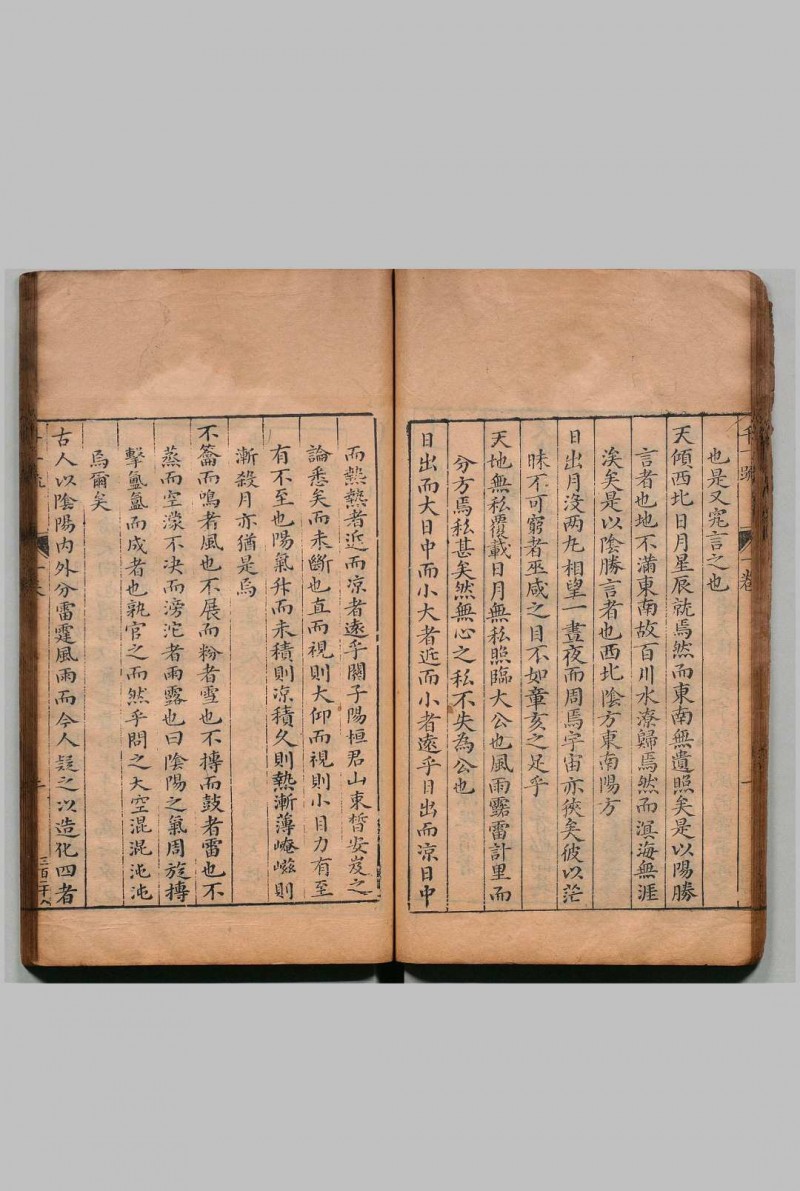 也是又究言之也
天傾西北日月星辰就焉然而東南無遺照矣是以陽勝
言者也地不滿東南故百川水潦歸焉然而溟海無涯
涘矣是以陰勝言者也西北陰方東南陽方
日出月沒兩丸相望一晝夜而周焉宇宙亦狹矣彼以茫
昧不可窮者巫咸之目不如童亥之足乎
天地無私覆載日月無私照臨大公也風雨露雷計里而
分方焉私甚矣然無心之私不失為公也
日出而大日中而小大者近而小者遠乎日出而凉日中
而熱熱者近而凉者遠乎關子陽桓君山束晳安岌之
論悉矣而未斷也直而視則大仰而視則小目力有至
有不至也陽氣升而未積則凉積久則熱漸薄崦嵫則
漸殺月亦猶是焉
不籥而鳴者風也不展而粉者雪也不摶而鼓者雷也不
蒸而空濛不决而滂沱者雨露也曰陰陽之氣周旋摶
擊氳氳而成者也孰官之而然乎問之大空混混沌沌
焉爾矣
古人以陰陽內外分雷霆風雨而今人疑之以造化四者
一卷
三百二十八